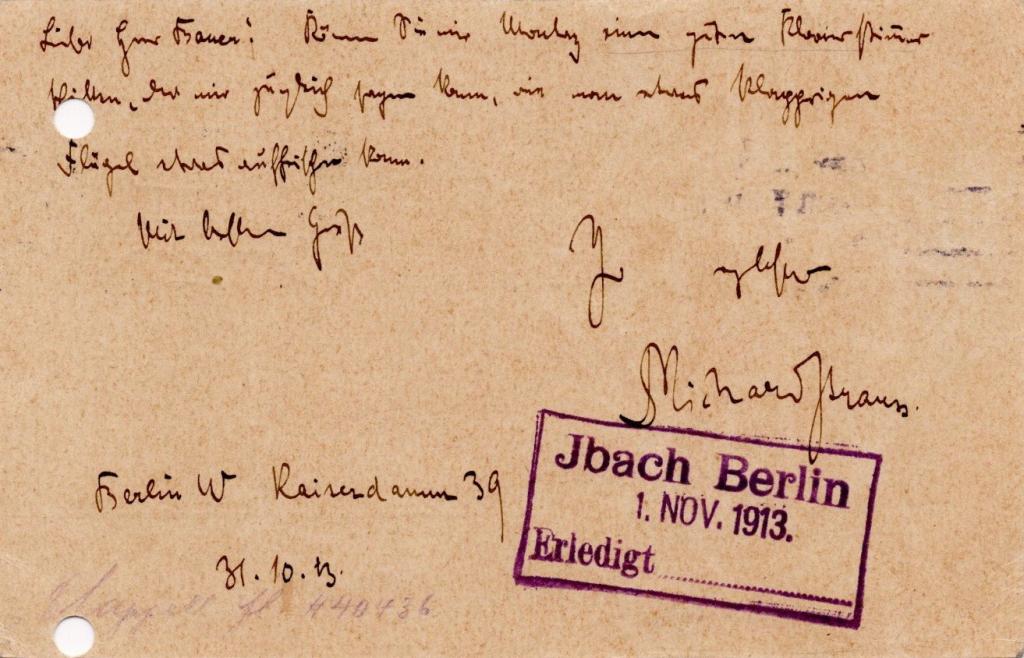 Lieber Herr Bauer! Können Sie mir Montag einen guten Klavierstimmer
schicken, der mir zugleich sagen kann, wie man etwas klapprigen
Flügel etwas auffrischen kann.
Mit besten Gruß
Ihr ergebenster
Richard Strauss.
Jbach Berlin
1. NOV. 1913.
Erledigt
Berlin W Kaiserdamm 39
31.10.13.
440436